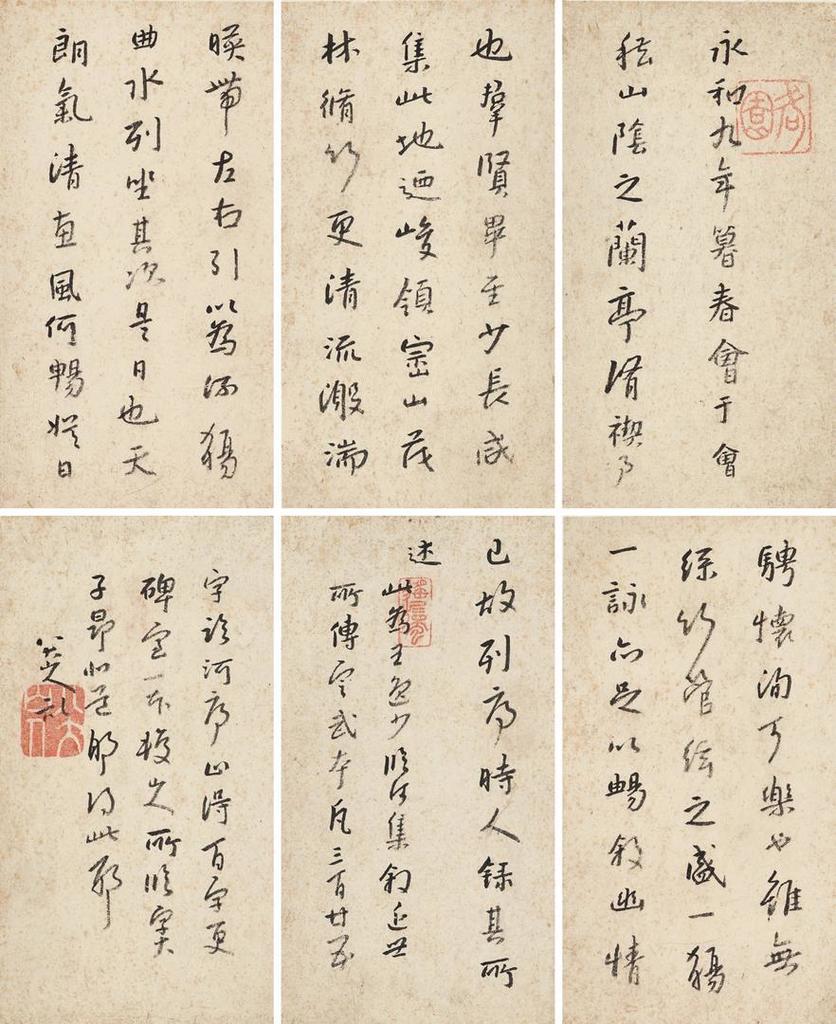 永和九年暮春會于會
嵇山陰之蘭亭脩禊事
也羣賢畢至少長咸
集此地迺峻領崇山茂
林脩竹更清流激湍
暎帶左右引以為流觴
曲水列坐其次是日也天
朗氣清惠風和暢娛目
騁懷洵可樂也雖無
絲竹管絃之盛一觴
一詠亦足以暢敘幽情
已故列序時人錄其所
述
此為王逸少臨河集叙近世
所傳定武本凡三百廿五
字臨河序止得百字更
碑定一本後之所臨
子昂那得此耶
八大山人記